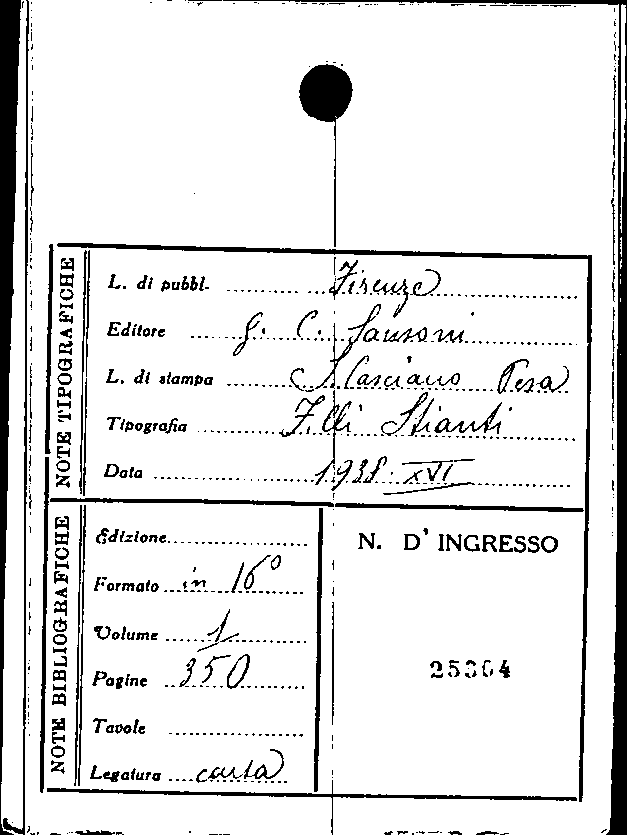 NOTE TIPOGRAFICHE
L. di pubbl. Firenze
Editore G. C. Sansoni
L. di stampa S. Casciano Pesa
Tipografia F.lli Stianti
Data 1938 · XVI
NOTE BIBLIOGRAFICHE
Edizione
Formato in 16º
Volume 1
Pagine 350
Tavole
Legatura carta
N. D' INGRESSO
25304